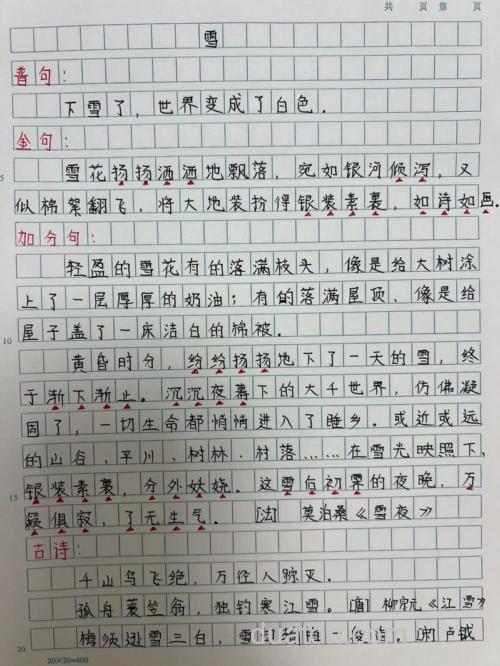 共 页 第 页
雪
普句：
下雪了，世界变成了白色。
金句：
雪花扬扬洒洒地飘落，宛如银河倾泻，又
5
似棉絮翻飞，将大地装扮得银装素裹，如诗如画。
加分句：
轻盈的雪花有的落满枝头，像是给大树涂
上了一层厚厚的奶油；有的落满屋顶，像是给
屋子盖了一床洁白的棉被。
10
黄昏时分，纷纷扬扬地下了一天的雪，终
于渐下渐止。沉沉夜幕下的大千世界，仿佛凝
固了，一切生命都悄悄进入了睡乡。或近或远
的山谷、平川、树林、村落……在雪光映照下，
银装素裹，分外妖娆。这雪后初霁的夜晚，万
15
籁俱寂，了无生气。 [法] 莫泊桑《雪夜》
古诗：
千山鸟飞绝，万径人踪灭。
孤舟蓑笠翁，独钓寒江雪。[唐] 柳宗元《江雪》
梅须逊雪三白，雪 一段 卢钺
20
20×20=400